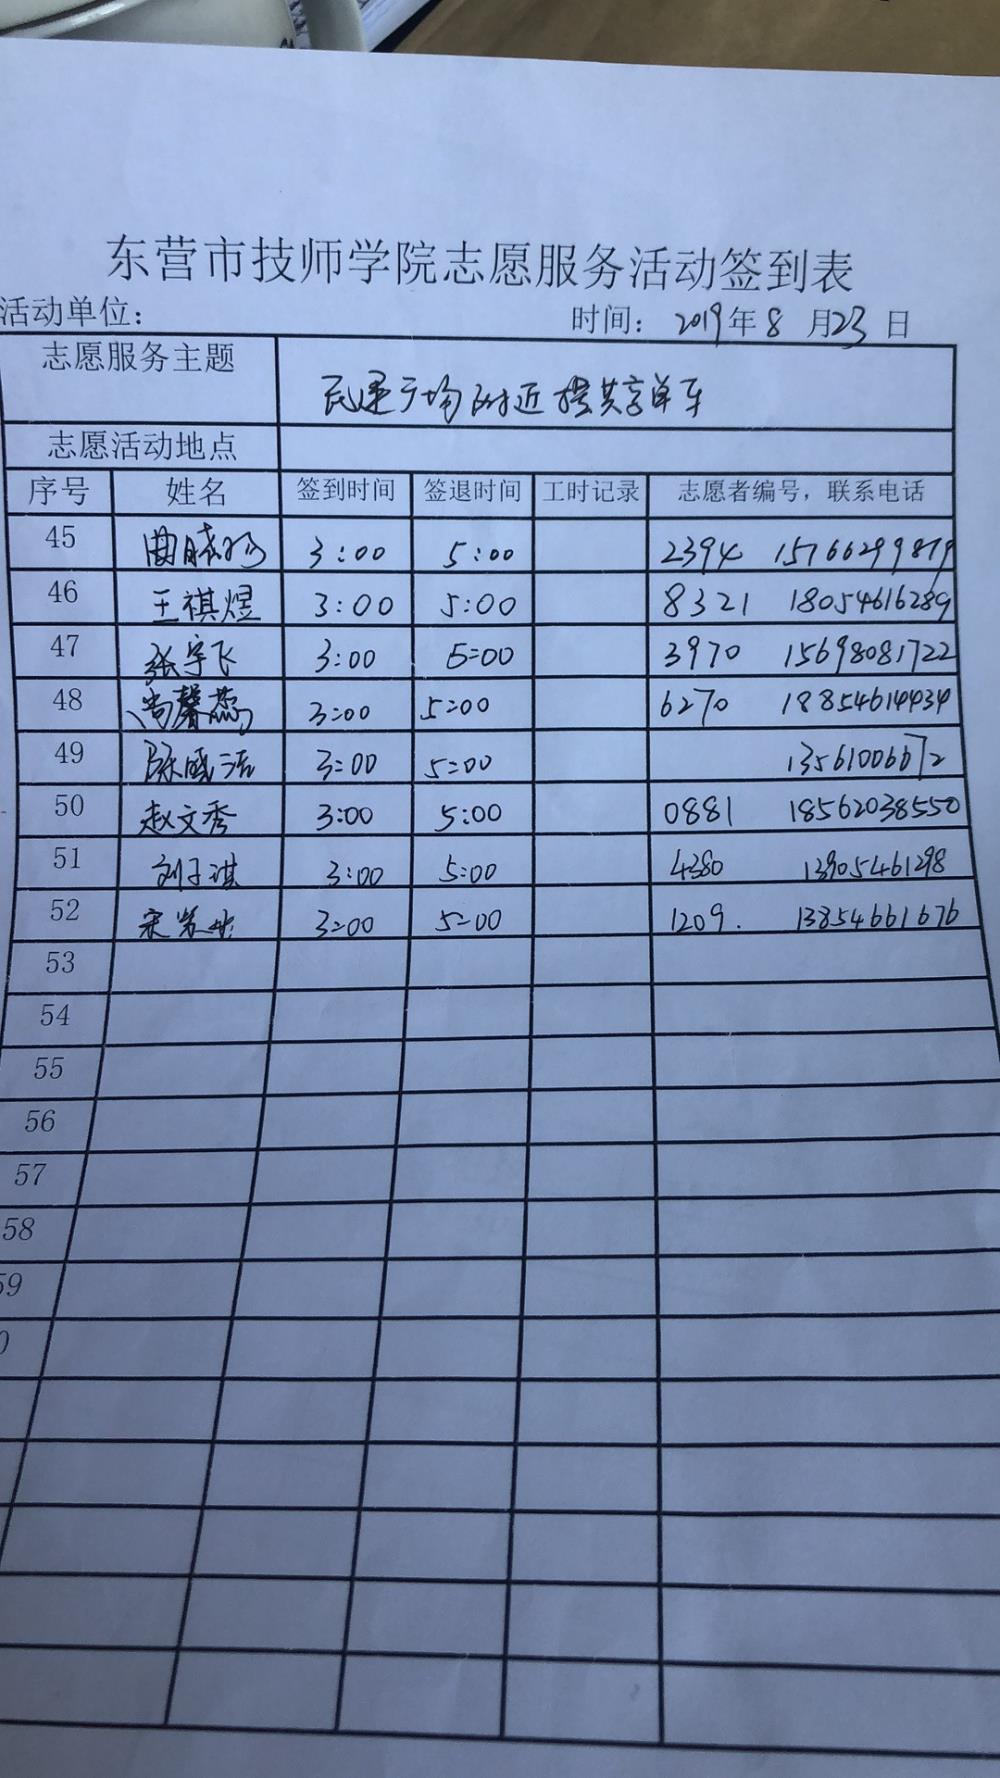 东营市技师学院志愿服务活动签到表
活动单位： 时间： 2019年8月23日
志愿服务主题 广场附近摆共享单车
志愿活动地点
序号 姓名 签到时间 签退时间 工时记录 志愿者编号，联系电话
45 曲 3:00 5:00 2394 15766299879
46 王祺煜 3:00 5:00 8321 18054616289
47 张宇飞 3:00 5:00 3970 15698081722
48 尚馨蕊 3:00 5:00 6270 18854614434
49 晓洁 3:00 5:00 13561006672
50 赵文秀 3:00 5:00 0881 18562038550
51 刘子淇 3:00 5:00 4380 13905461298
52 宋 3:00 5:00 1209. 13854661676
53
54
55
56
57
58
59
0